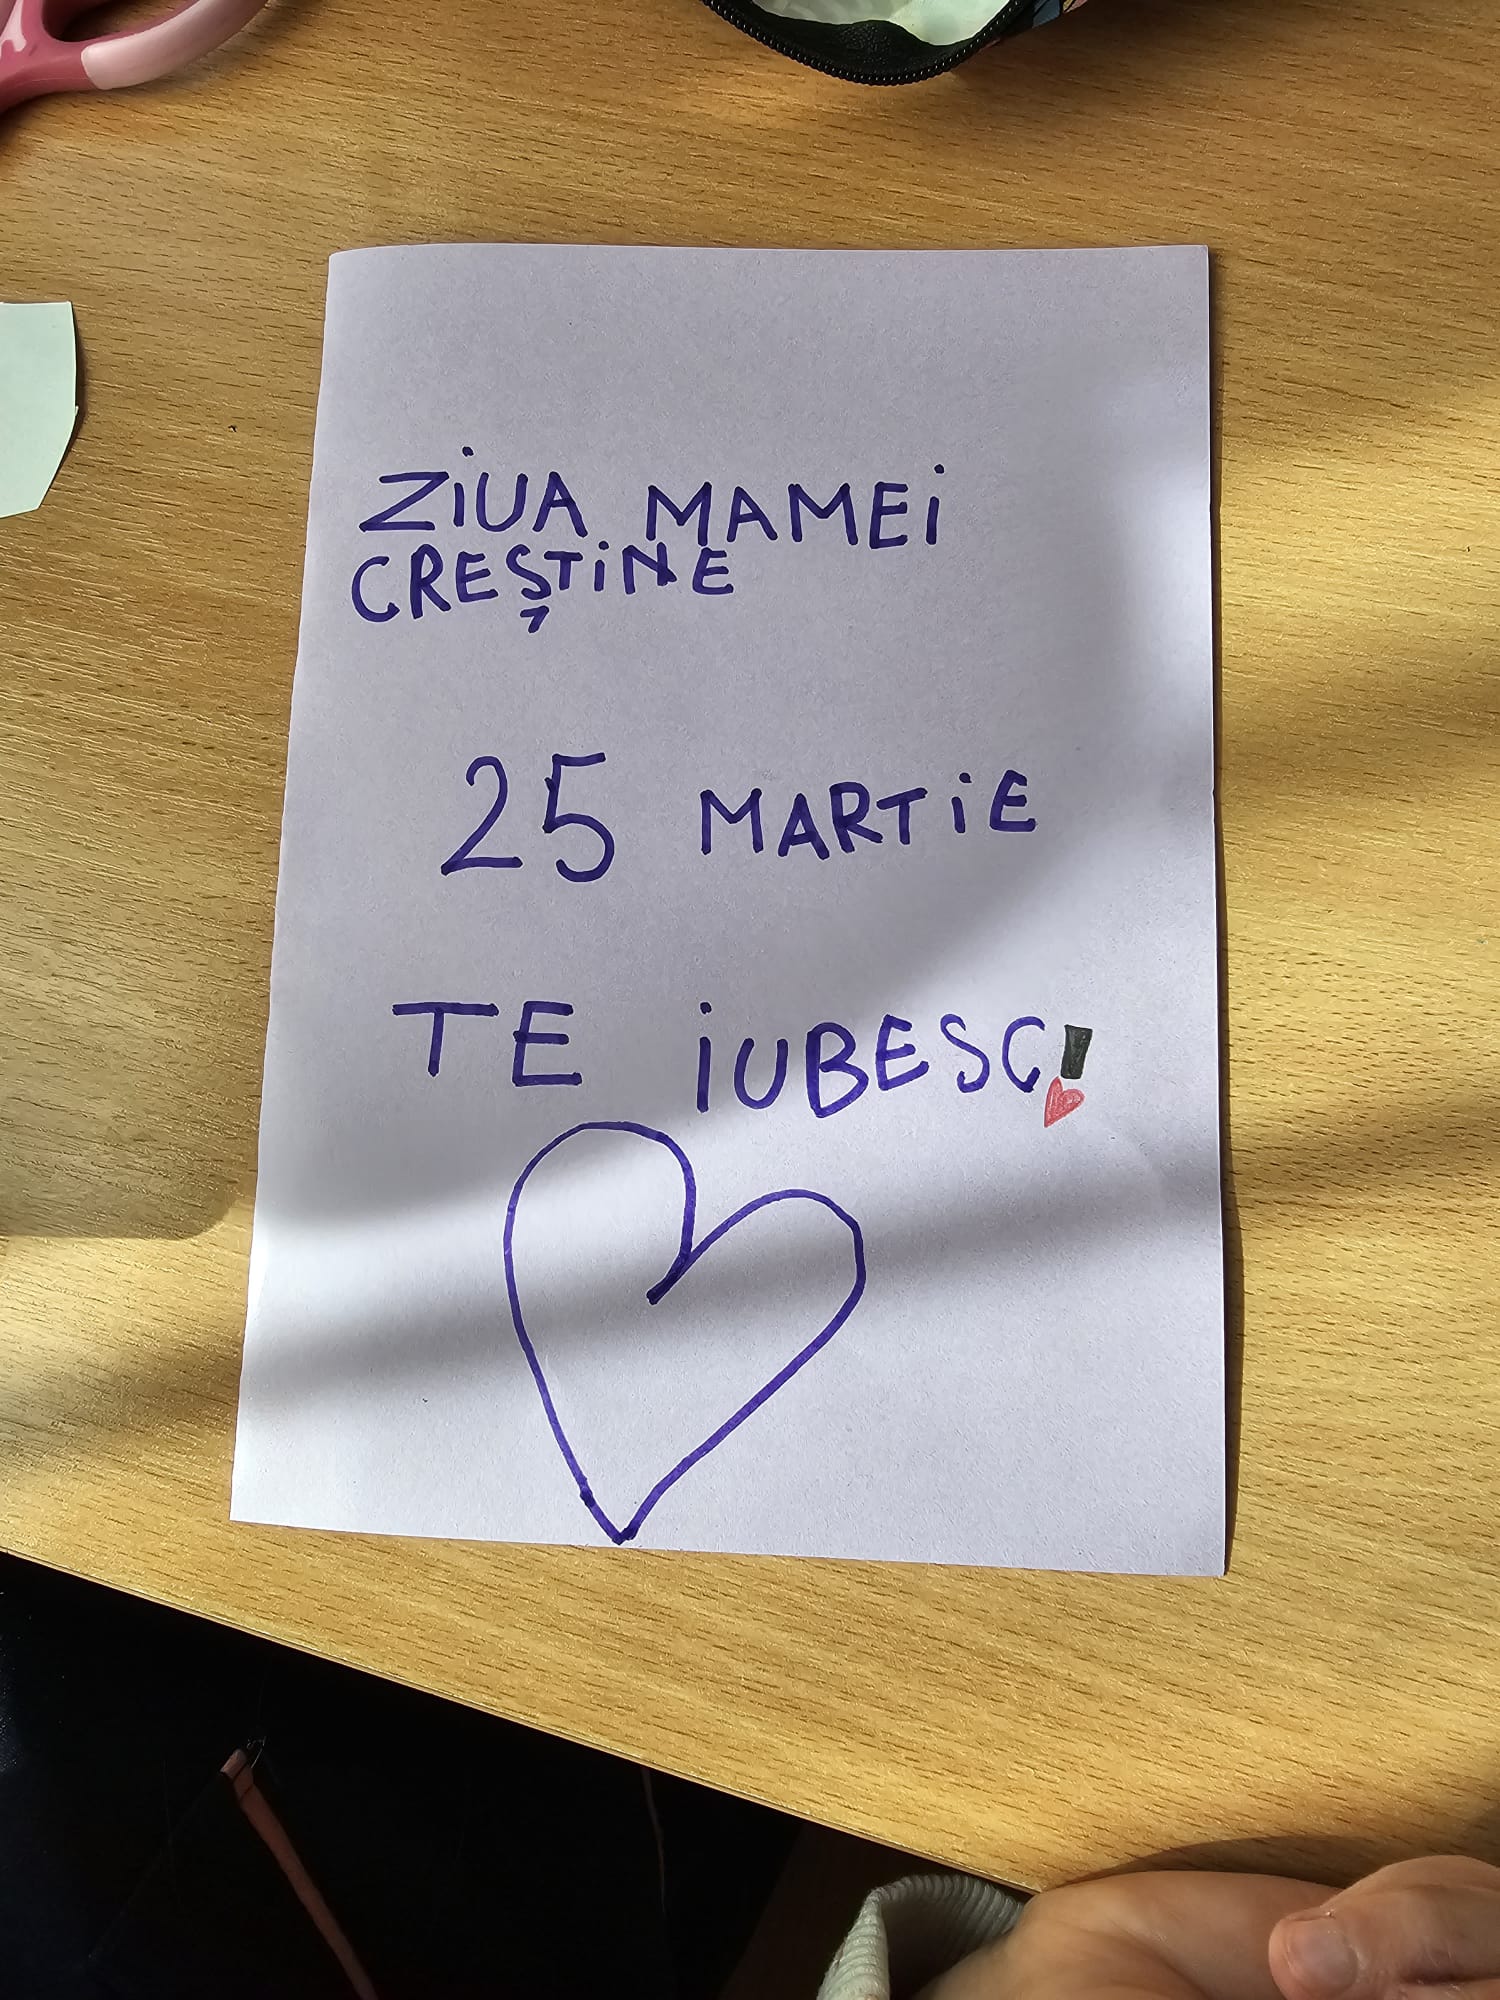 ZiUA MAMEi
CREȘTiNE
25 MARTiE
TE iUBESC!